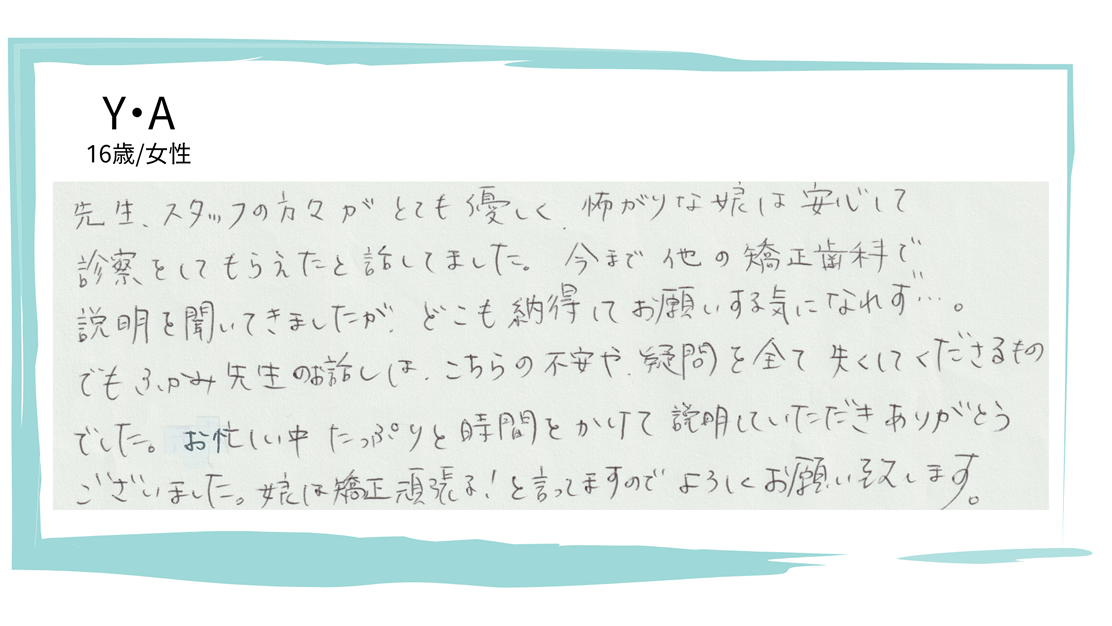 Y・A
16歳/女性
先生、スタッフの方々がとても優しく、怖がりな娘は安心して
診察をしてもらえたと話してました。今まで他の矯正歯科で
説明を聞いてきましたが、どこも納得してお願いする気になれず…。
でもふかみ先生のお話しは、こちらの不安や、疑問を全て失くしてくださるもの
でした。お忙しい中たっぷりと時間をかけて説明していただきありがとう
ございました。娘は矯正頑張る！と言ってますのでよろしくお願い致します。